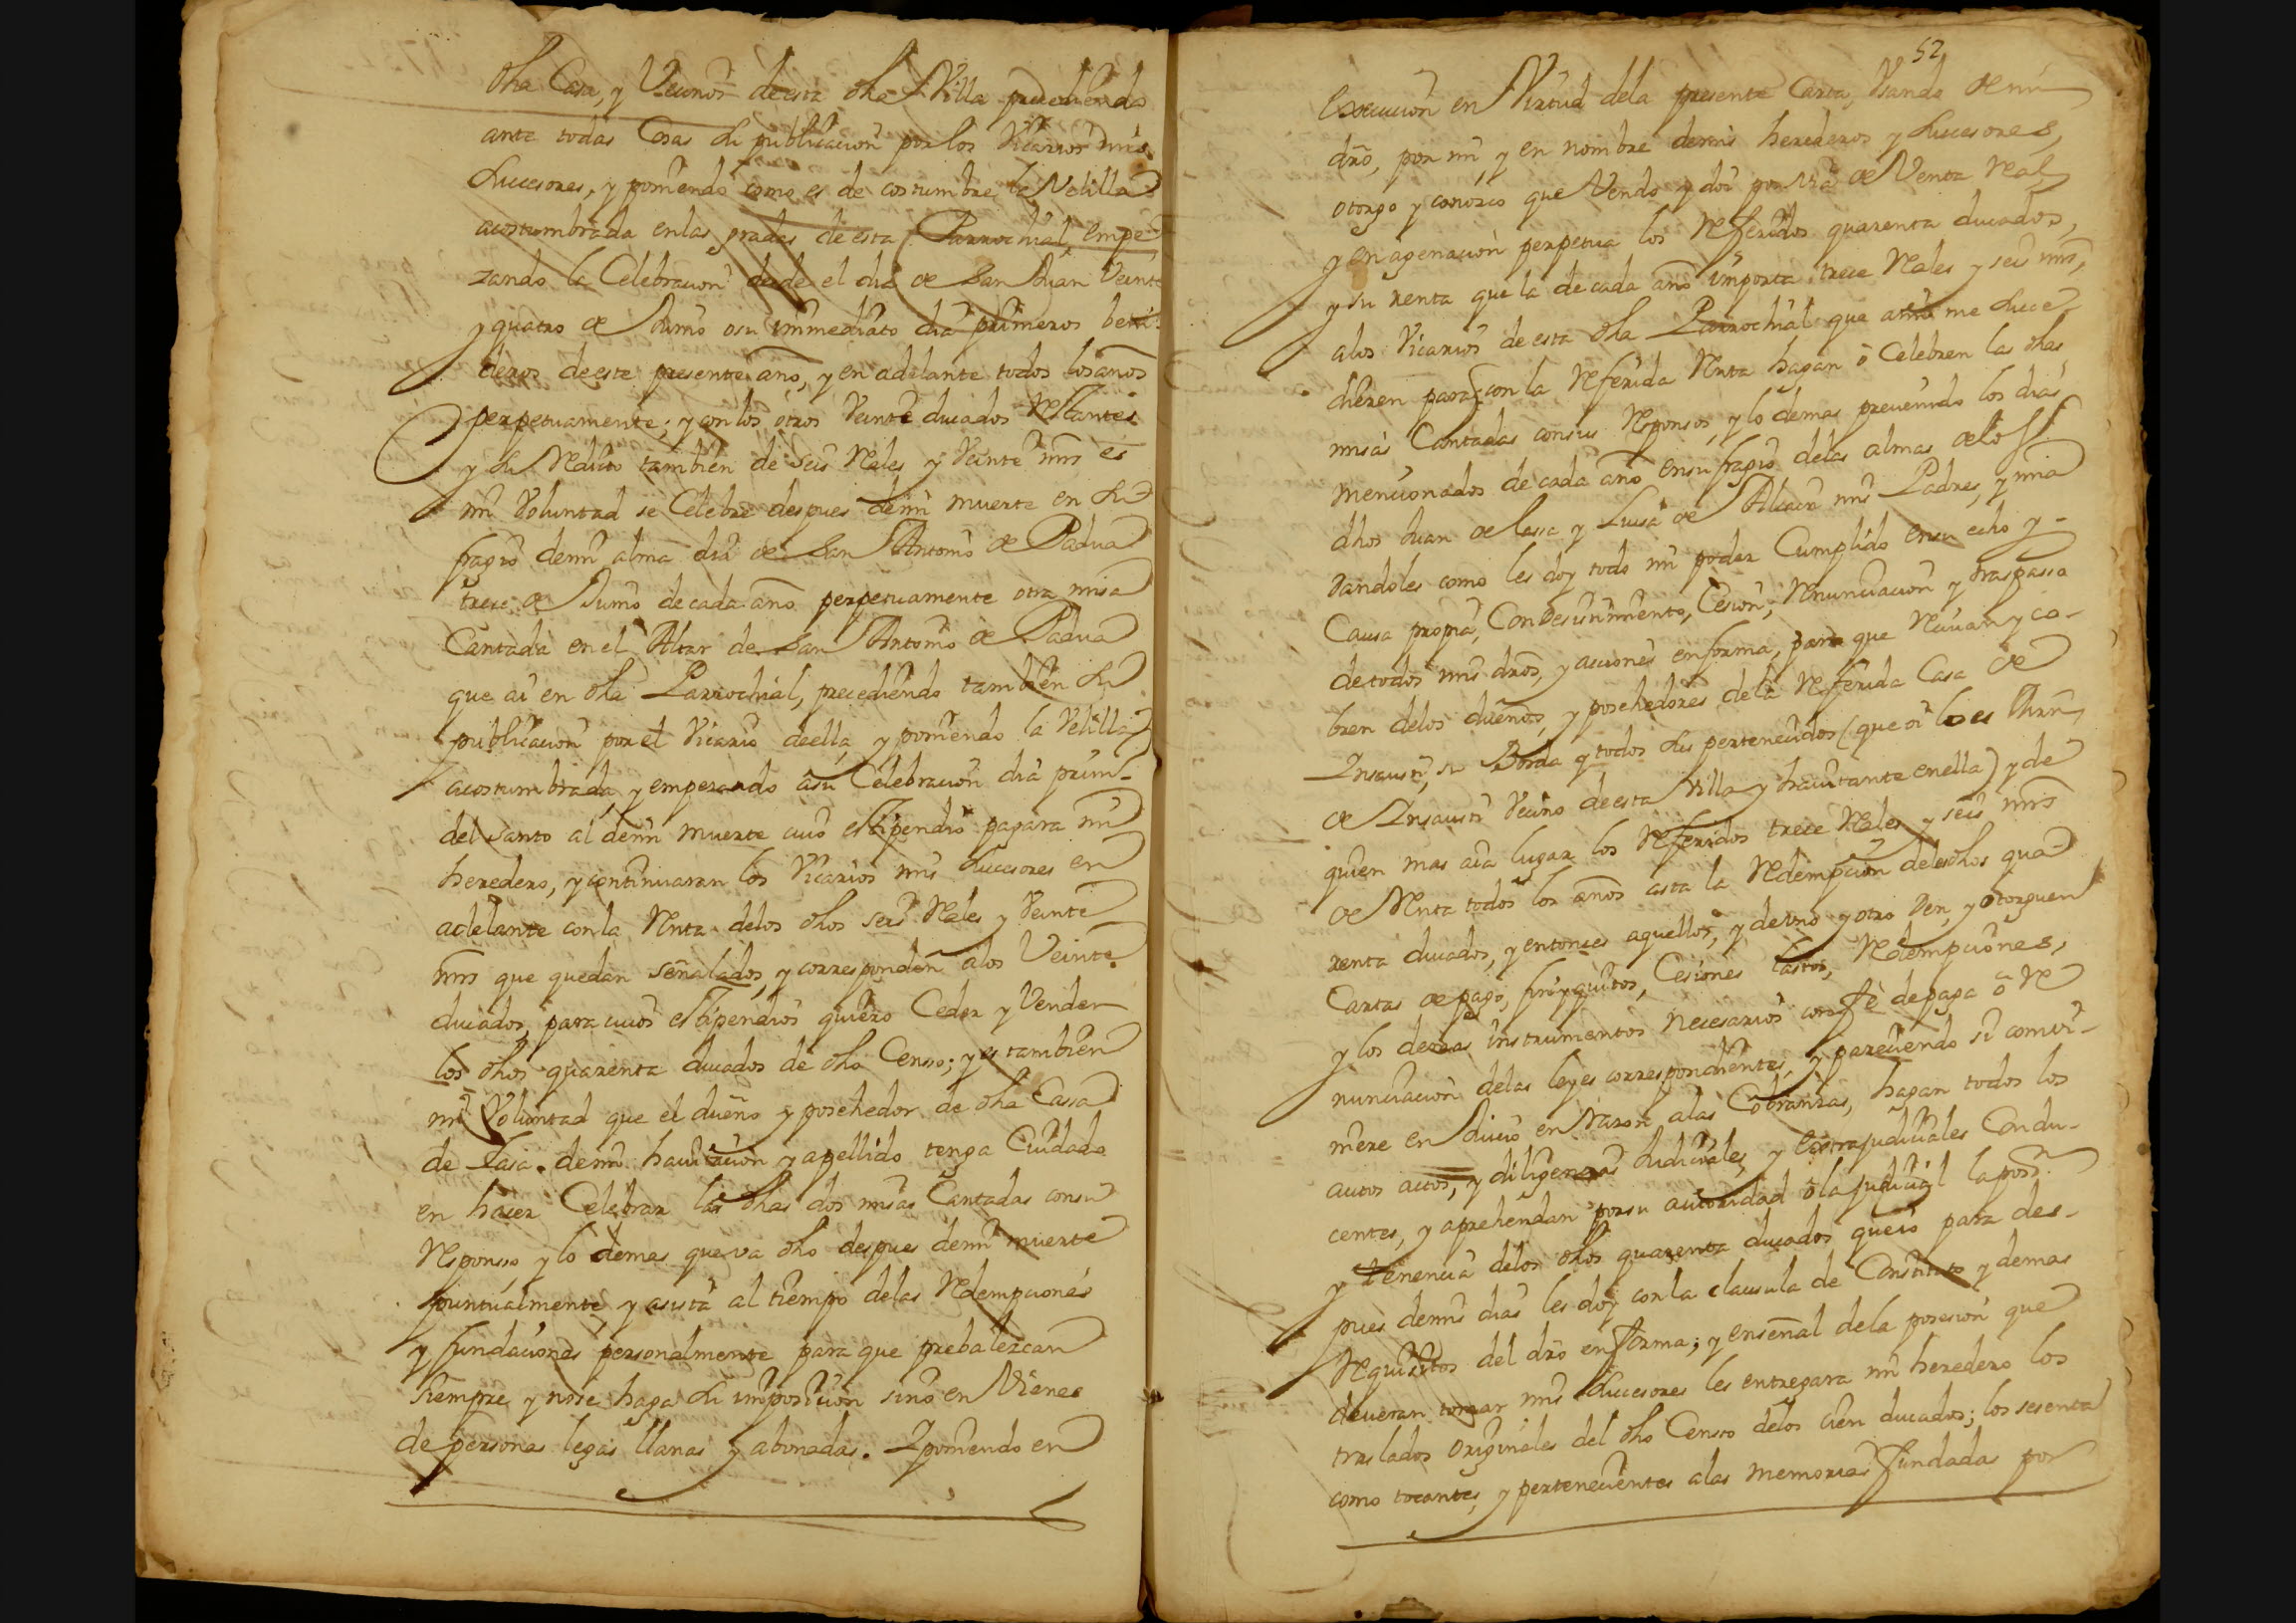 dha Casa, y Vecinos de esta dha Villa precediendo
ante todas Cosas su publicacion por los Vicarios mis
Succesores, y poniendo como es de costumbre la Velilla
acostumbrada en las gradas de esta Parrochial, empe-
zando la Celebracion desde el dia de San Juan Veinte
y quatro de Junio o su immediato dia primeros beni-
deros de este presente año, y en adelante todos los años
perpetuamente; y con los otros Veinte ducados restantes
y su Redito tambien de seis Reales y Veinte mrs es
mi Voluntad se Celebre despues de mi muerte en su
fragio de mi alma dia de San Antonio de Padua
trece de Junio de cada año perpetuamente otra misa
Cantada en el Altar de San Antonio de Padua
que ai en dha Parrochial, precediendo tambien su
publicacion por el Vicario de ella, y poniendo la Velilla
acostumbrada, y empezando a su Celebracion dia prim-
del Santo al de mi muerte cuio estipendio pagara mi
heredero, y continuaran los Vicarios mis Succesores en
adelante con la Renta de los dhos seis Reales y Veinte
mrs que quedan señalados, y corresponden a los Veinte
ducados, para cuios estipendios quiero Ceder y Vender
los dhos quarenta ducados de dho Censo; y es tambien
mi Voluntad que el dueño y posehedor de dha Casa
de Lasa de mi havitacion y apellido tenga Cuidado
en hacer Celebrar las dhas dos misas Cantadas con su
Responso, y lo demas que va dho despues de mi muerte
puntualmente, y asista al tiempo de las Redempciones
y fundaciones personalmente para que prebalezcan
siempre y no se haga su imposicion sino en Vienes
de personas legas llanas y abonadas. Y poniendo en
52
Execucion en Virtud de la presente Carta, Usando de mi
dro, por mi, y en nombre de mis herederos y Succesores,
otorgo y conozco que Vendo y doi por via de Venta Real
y enagenacion perpetua los Referidos quarenta ducados,
y su renta que la de cada año importa trece Reales y seis mrs,
a los Vicarios de esta dha Parrochial que a mi me Succe-
dieren para con la Referida Renta hagan o Celebren las dhas
misas Cantadas con sus Responsos, y lo demas prevenido los dias
mencionados de cada año en sufragio de las almas de los
dhos Juan de Lasa y Luisa de mis Padres, y mia
Dandoles como les doy todo mi poder Cumplido en su echo y
Causa propia, Con Desistimiento, Cesion, Renunciacion y traspasso
de todos mis dros, y acciones en forma, para que Reciван y co-
bren de los dueños, y posehedores de la Referida Casa de
Insausti, su Borda y todos sus pertenecidos (que oi lo es
de Insausti Vecino de esta Villa y havitante en ella) y de
quien mas aia lugar los Referidos trece Reales y seis mrs
de Renta todos los años asta la Redempcion de los dhos qua-
renta ducados, y entonces aquellos, y de uno y otro Den, y otorguen
Cartas de pago, finiquitos, Cesiones lastos, Redempciones,
y los demas instrumentos necesarios con fe de paga o Re
nunciacion de las leyes correspondientes, y pareciendo si convi-
niere en Juicio en Razon a las Cobranzas, hagan todos los
autos actos, y diligencias Judiciales, y Extrajudiciales Condu-
centes, y aprehendan por su autoridad o la judicial la pos.on
y tenencia de los dhos quarenta ducados que io para des-
pues de mis dias les doy con la clausula de Constituto y demas
Requisitos del dro en forma; y en señal de la posesion que
deveran tomar mis Succesores les entregara mi heredero los
traslados originales del dho Censo de los cien ducados; los sesenta
como tocantes, y pertenecientes a las memorias fundadas por